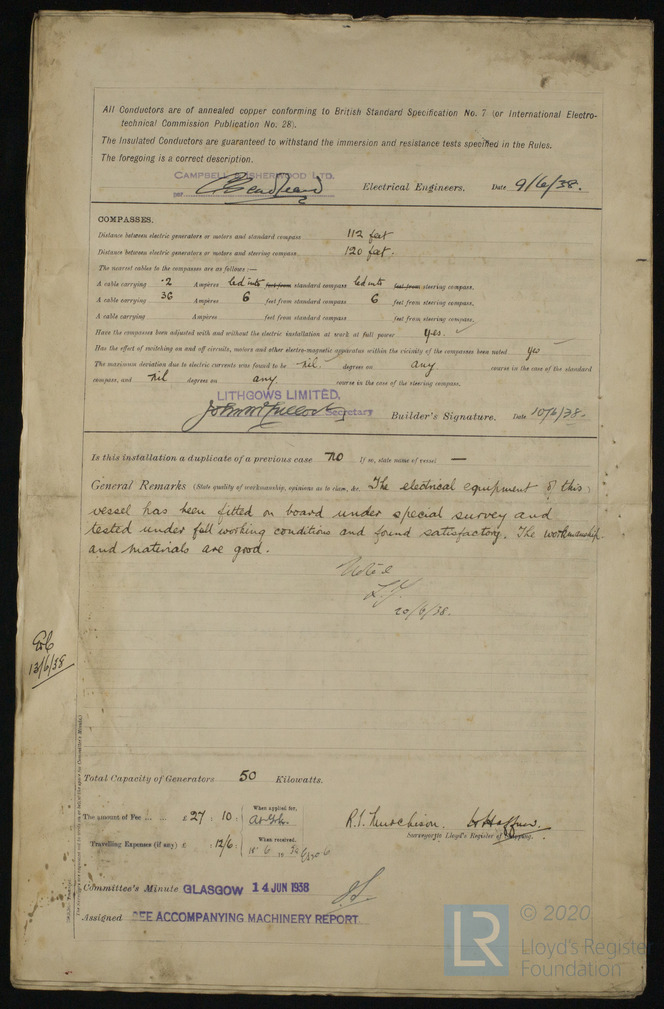 All Conductors are of annealed copper conforming to British Standard Specification No. 7 (or International Electro-
technical Commission Publication No. 28).
The Insulated Conductors are guaranteed to withstand the immersion and resistance tests specified in the Rules.
The foregoing is a correct description.
CAMPBELL & ISHERWOOD LTD.
per Electrical Engineers. Date 9/6/38.
COMPASSES.
Distance between electric generators or motors and standard compass 112 feet
Distance between electric generators or motors and steering compass 120 feet.
The nearest cables to the compasses are as follows :—
A cable carrying .2 Ampères led into feet from standard compass led into feet from steering compass.
A cable carrying 36 Ampères 6 feet from standard compass 6 feet from steering compass.
A cable carrying Ampères feet from standard compass feet from steering compass.
Have the compasses been adjusted with and without the electric installation at work at full power yes.
Has the effect of switching on and off circuits, motors and other electro-magnetic apparatus within the vicinity of the compasses been noted yes
The maximum deviation due to electric currents was found to be nil. degrees on any course in the case of the standard
compass, and nil degrees on any. course in the case of the steering compass.
LITHGOWS LIMITED,
Secretary Builder's Signature. Date 10/6/38.
Is this installation a duplicate of a previous case no If so, state name of vessel —
General Remarks (State quality of workmanship, opinions as to class, &c. The electrical equipment of this
vessel has been fitted on board under special survey and
tested under full working conditions and found satisfactory. The workmanship
and materials are good.
Noted
20/6/38.
13/6/38
Total Capacity of Generators 50 Kilowatts.
The amount of Fee ... ... £ 27 : 10 : When applied for,
R. S. Hutchison.
Surveyor to Lloyd's Register of Shipping.
Travelling Expenses (if any) £ : 12/6 : When received,
Committee's Minute GLASGOW 14 JUN 1938
Assigned SEE ACCOMPANYING MACHINERY REPORT.
LR
© 2020
Lloyd's Register
Foundation